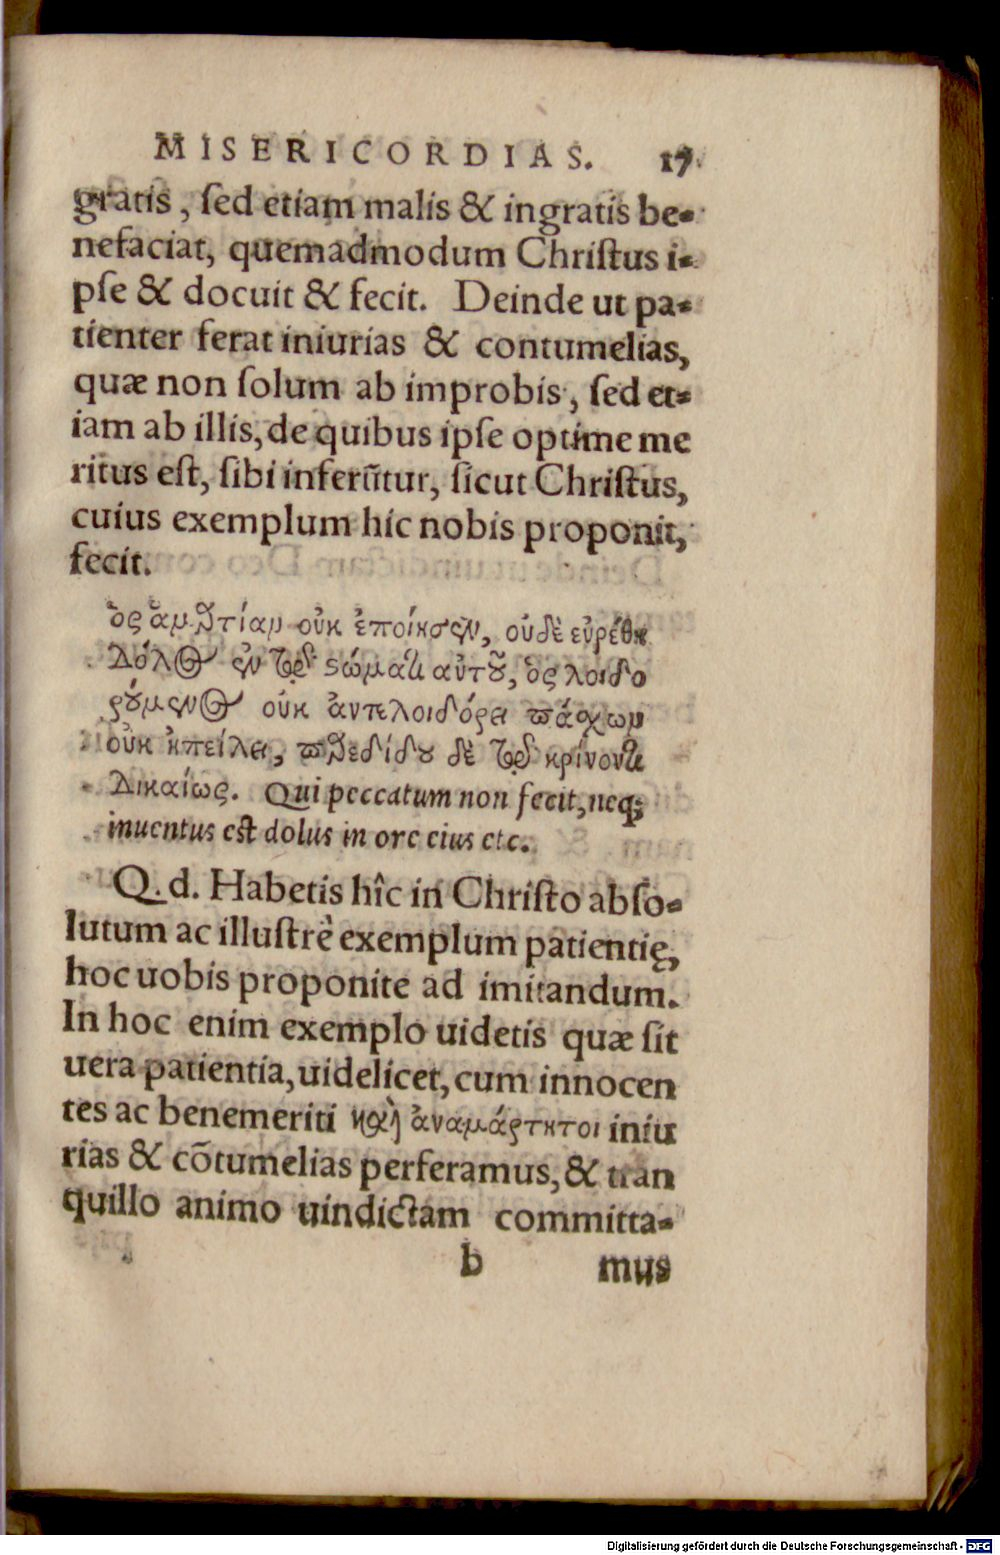 MISERICORDIAS. 17
gratis, sed etiam malis & ingratis be-
nefaciat, quemadmodum Christus i-
pse & docuit & fecit. Deinde ut pa-
tienter ferat iniurias & contumelias,
quæ non solum ab improbis, sed et-
iam ab illis, de quibus ipse optime me
ritus est, sibi inferũtur, sicut Christus,
cuius exemplum hic nobis proponit,
fecit.
ὃς ἁμαρτίαν οὐκ ἐποίησεν, οὐδὲ εὑρέθη
δόλος ἐν τῷ στόματι αὐτοῦ, ὃς λοιδο
ρούμενος οὐκ ἀντελοιδόρει πάσχων
οὐκ ἠπείλει, παρεδίδου δὲ τῷ κρίνοντι
δικαίως. Qui peccatum non fecit, neq;
inuentus est dolus in ore eius etc.
Q.d. Habetis hîc in Christo abso-
lutum ac illustrè exemplum patientię,
hoc uobis proponite ad imitandum.
In hoc enim exemplo uidetis quæ sit
uera patientia, uidelicet, cum innocen
tes ac benemeriti καὶ ἀναμάρτητοι iniu
rias & cõtumelias perferamus, & tran
quillo animo uindictam committa-
b mus
Digitalisierung gefördert durch die Deutsche Forschungsgemeinschaft - DFG